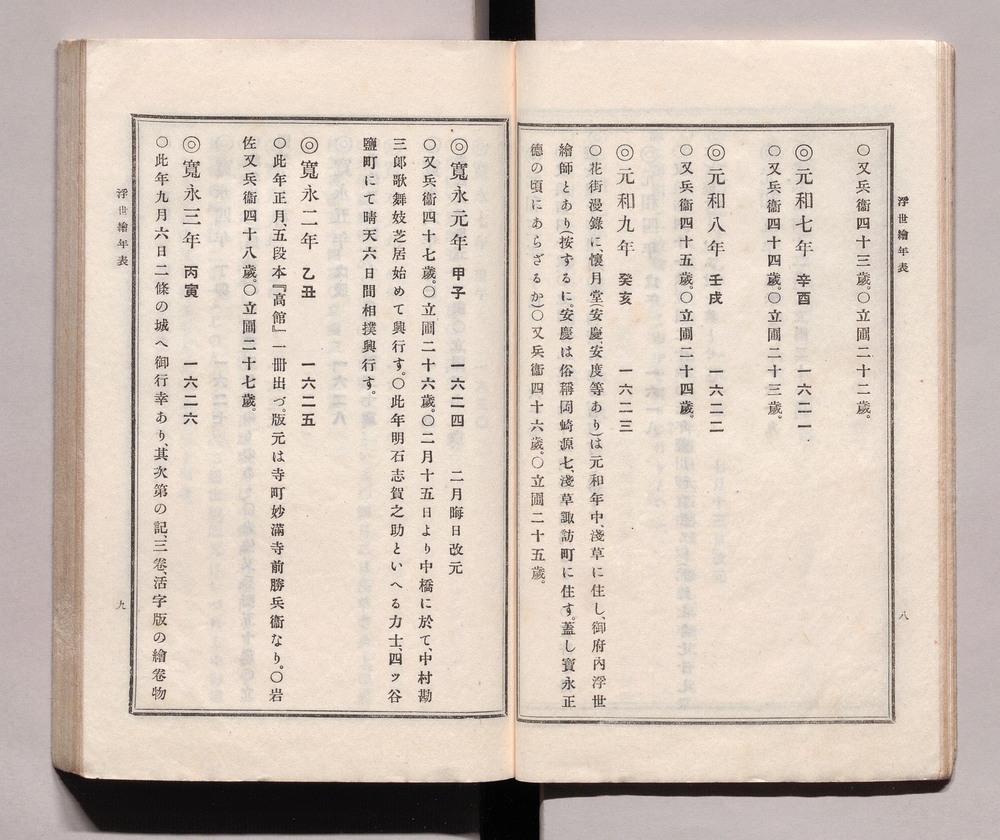 浮世繪年表
○又兵衞四十三歲。○立圃二十二歲。
◎元和七年 辛酉 一六二一
○又兵衞四十四歲。○立圃二十三歲。
◎元和八年 壬戌 一六二二
○又兵衞四十五歲。○立圃二十四歲。
◎元和九年 癸亥 一六二三
○花街漫錄に、懷月堂(安慶、安度等あり)は元和年中、淺草に住し、御府內浮世
繪師とあり(按するに。安慶は俗稱岡崎源七、淺草諏訪町に住す。蓋し寶永正
德の頃にあらざるか)○又兵衞四十六歲。○立圃二十五歲。
八
◎寬永元年 甲子 一六二四 二月晦日改元
○又兵衞四十七歲。○立圃二十六歲。○二月十五日より中橋に於て、中村勘
三郞歌舞妓芝居始めて興行す。○此年明石志賀之助といへる力士、四ッ谷
鹽町にて晴天六日間相撲興行す。
◎寬永二年 乙丑 一六二五
○此年正月、五段本『高館』一冊出づ。版元は寺町妙滿寺前勝兵衞なり。○岩
佐又兵衞四十八歲。○立圃二十七歲。
◎寬永三年 丙寅 一六二六
○此年九月六日二條の城へ御行幸あり、其次第の記、三卷、活字版の繪卷物
浮世繪年表
九